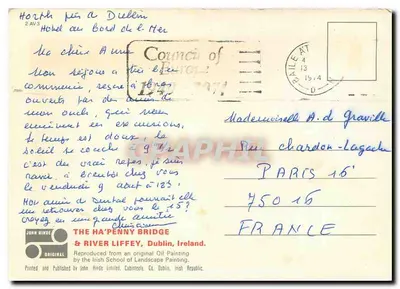 Howth près de Dublin
Hôtel au bord de la Mer
Ma chère Anne
Mon séjour a très bien
commencé,
ouverts par des amis de
mon oncle, qui nous
emmènent en excursions,
le temps est doux le
soleil se couche à 9
c'est du vrai repos, je suis
ravie, à bientôt chez vous
le vendredi 9 août à
Mon amie de Dinard pourrait elle
me retrouver chez vous le 15?
croyez en ma grande amitié
Council of
Europe
BAILE ÁT
1974
Mademoiselle A. de Graville
Rue Chardon-Lagache
PARIS 16
75016
FRANCE
JOHN HINDE
ORIGINAL
THE HA'PENNY BRIDGE
& RIVER LIFFEY, Dublin, Ireland.
Reproduced from an original Oil Painting
by the Irish School of Landscape Painting.
Printed and Published by John Hinde Limited, Cabinteely, Co. Dublin, Irish Republic.